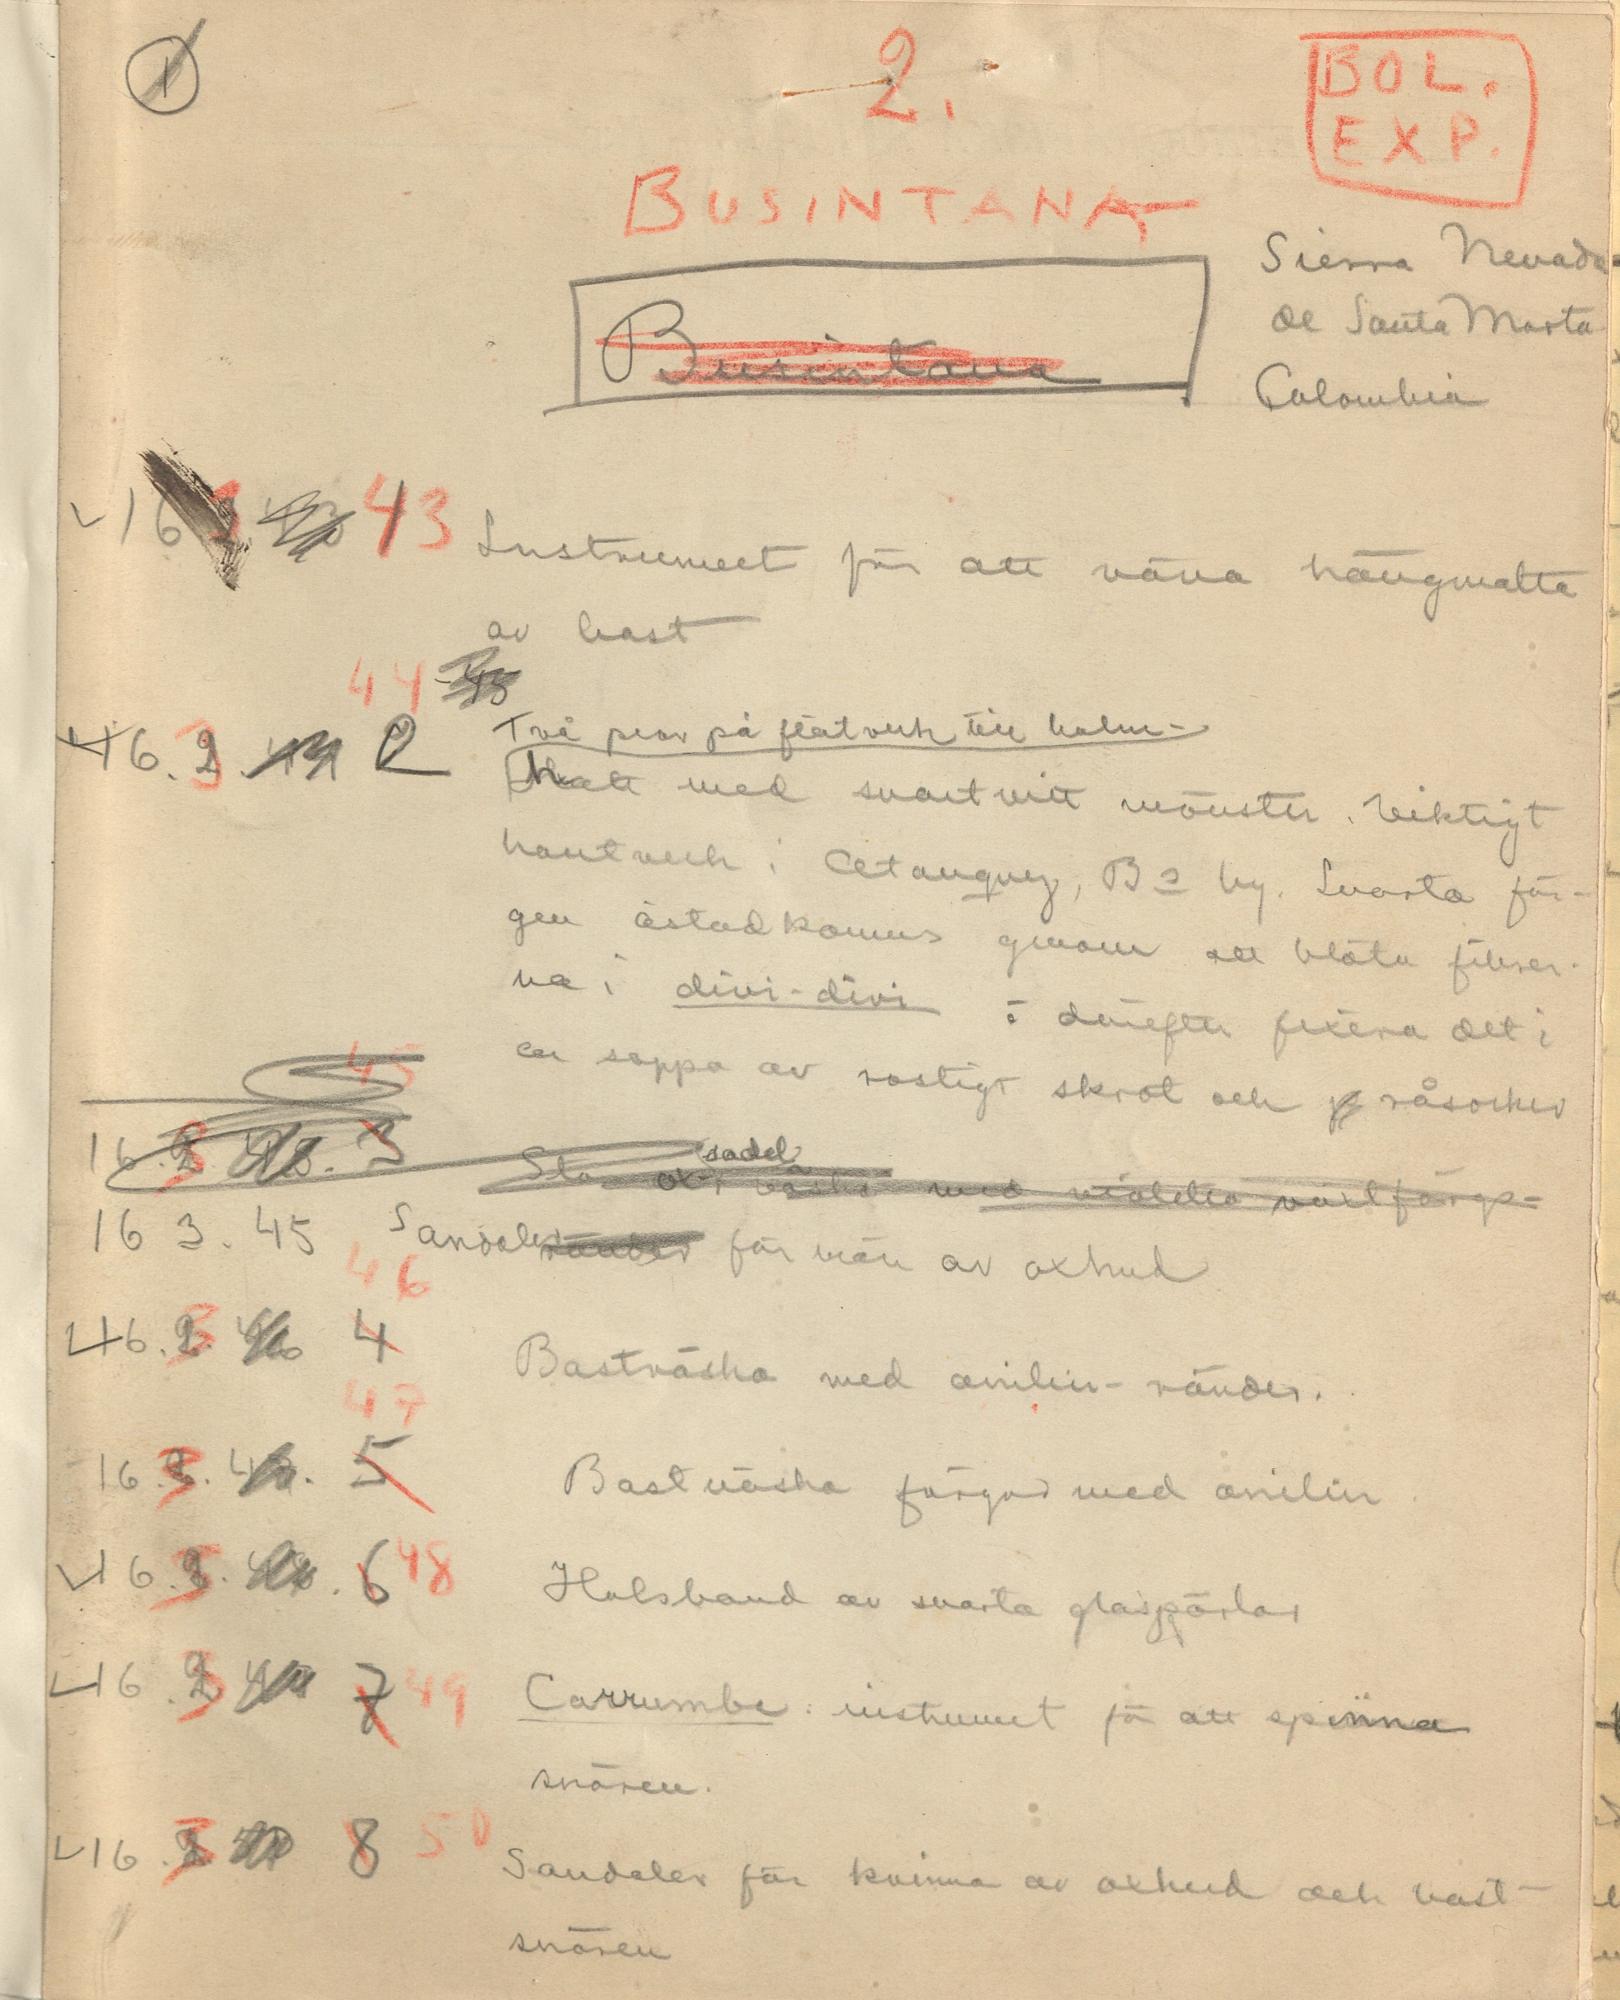 1
2.
BOL.
EXP.
BUSINTANA
Sierra Nevada
de Santa Marta
Colombia
Busintana
16 3 43 Instrument för att väva hängmatta
av bast
44
16. 3. 2 Två prov på flätverk till halm-
hatt med svartvitt mönster. Viktigt
hantverk i Atanquez, B:s by. Svarta fär-
gen åstadkommes genom att blöta fibrer-
na i divi-divi o därefter fixera det i
en soppa av rostigt skrot och råsocker
45
16. 3. 3
sadel
med växtfärgs-
16 3. 45 Sandaler ränder för män av oxhud
46
16. 3 4 Bastväska med anilin-ränder.
47
16. 3. 5 Bastväska färgad med anilin.
16. 3. 6 48 Halsband av svarta glaspärlar
16. 3 7 49 Carrumba: instrument för att spinna
snören.
16. 3 8 50 Sandaler för kvinna av oxhud och bast-
snören